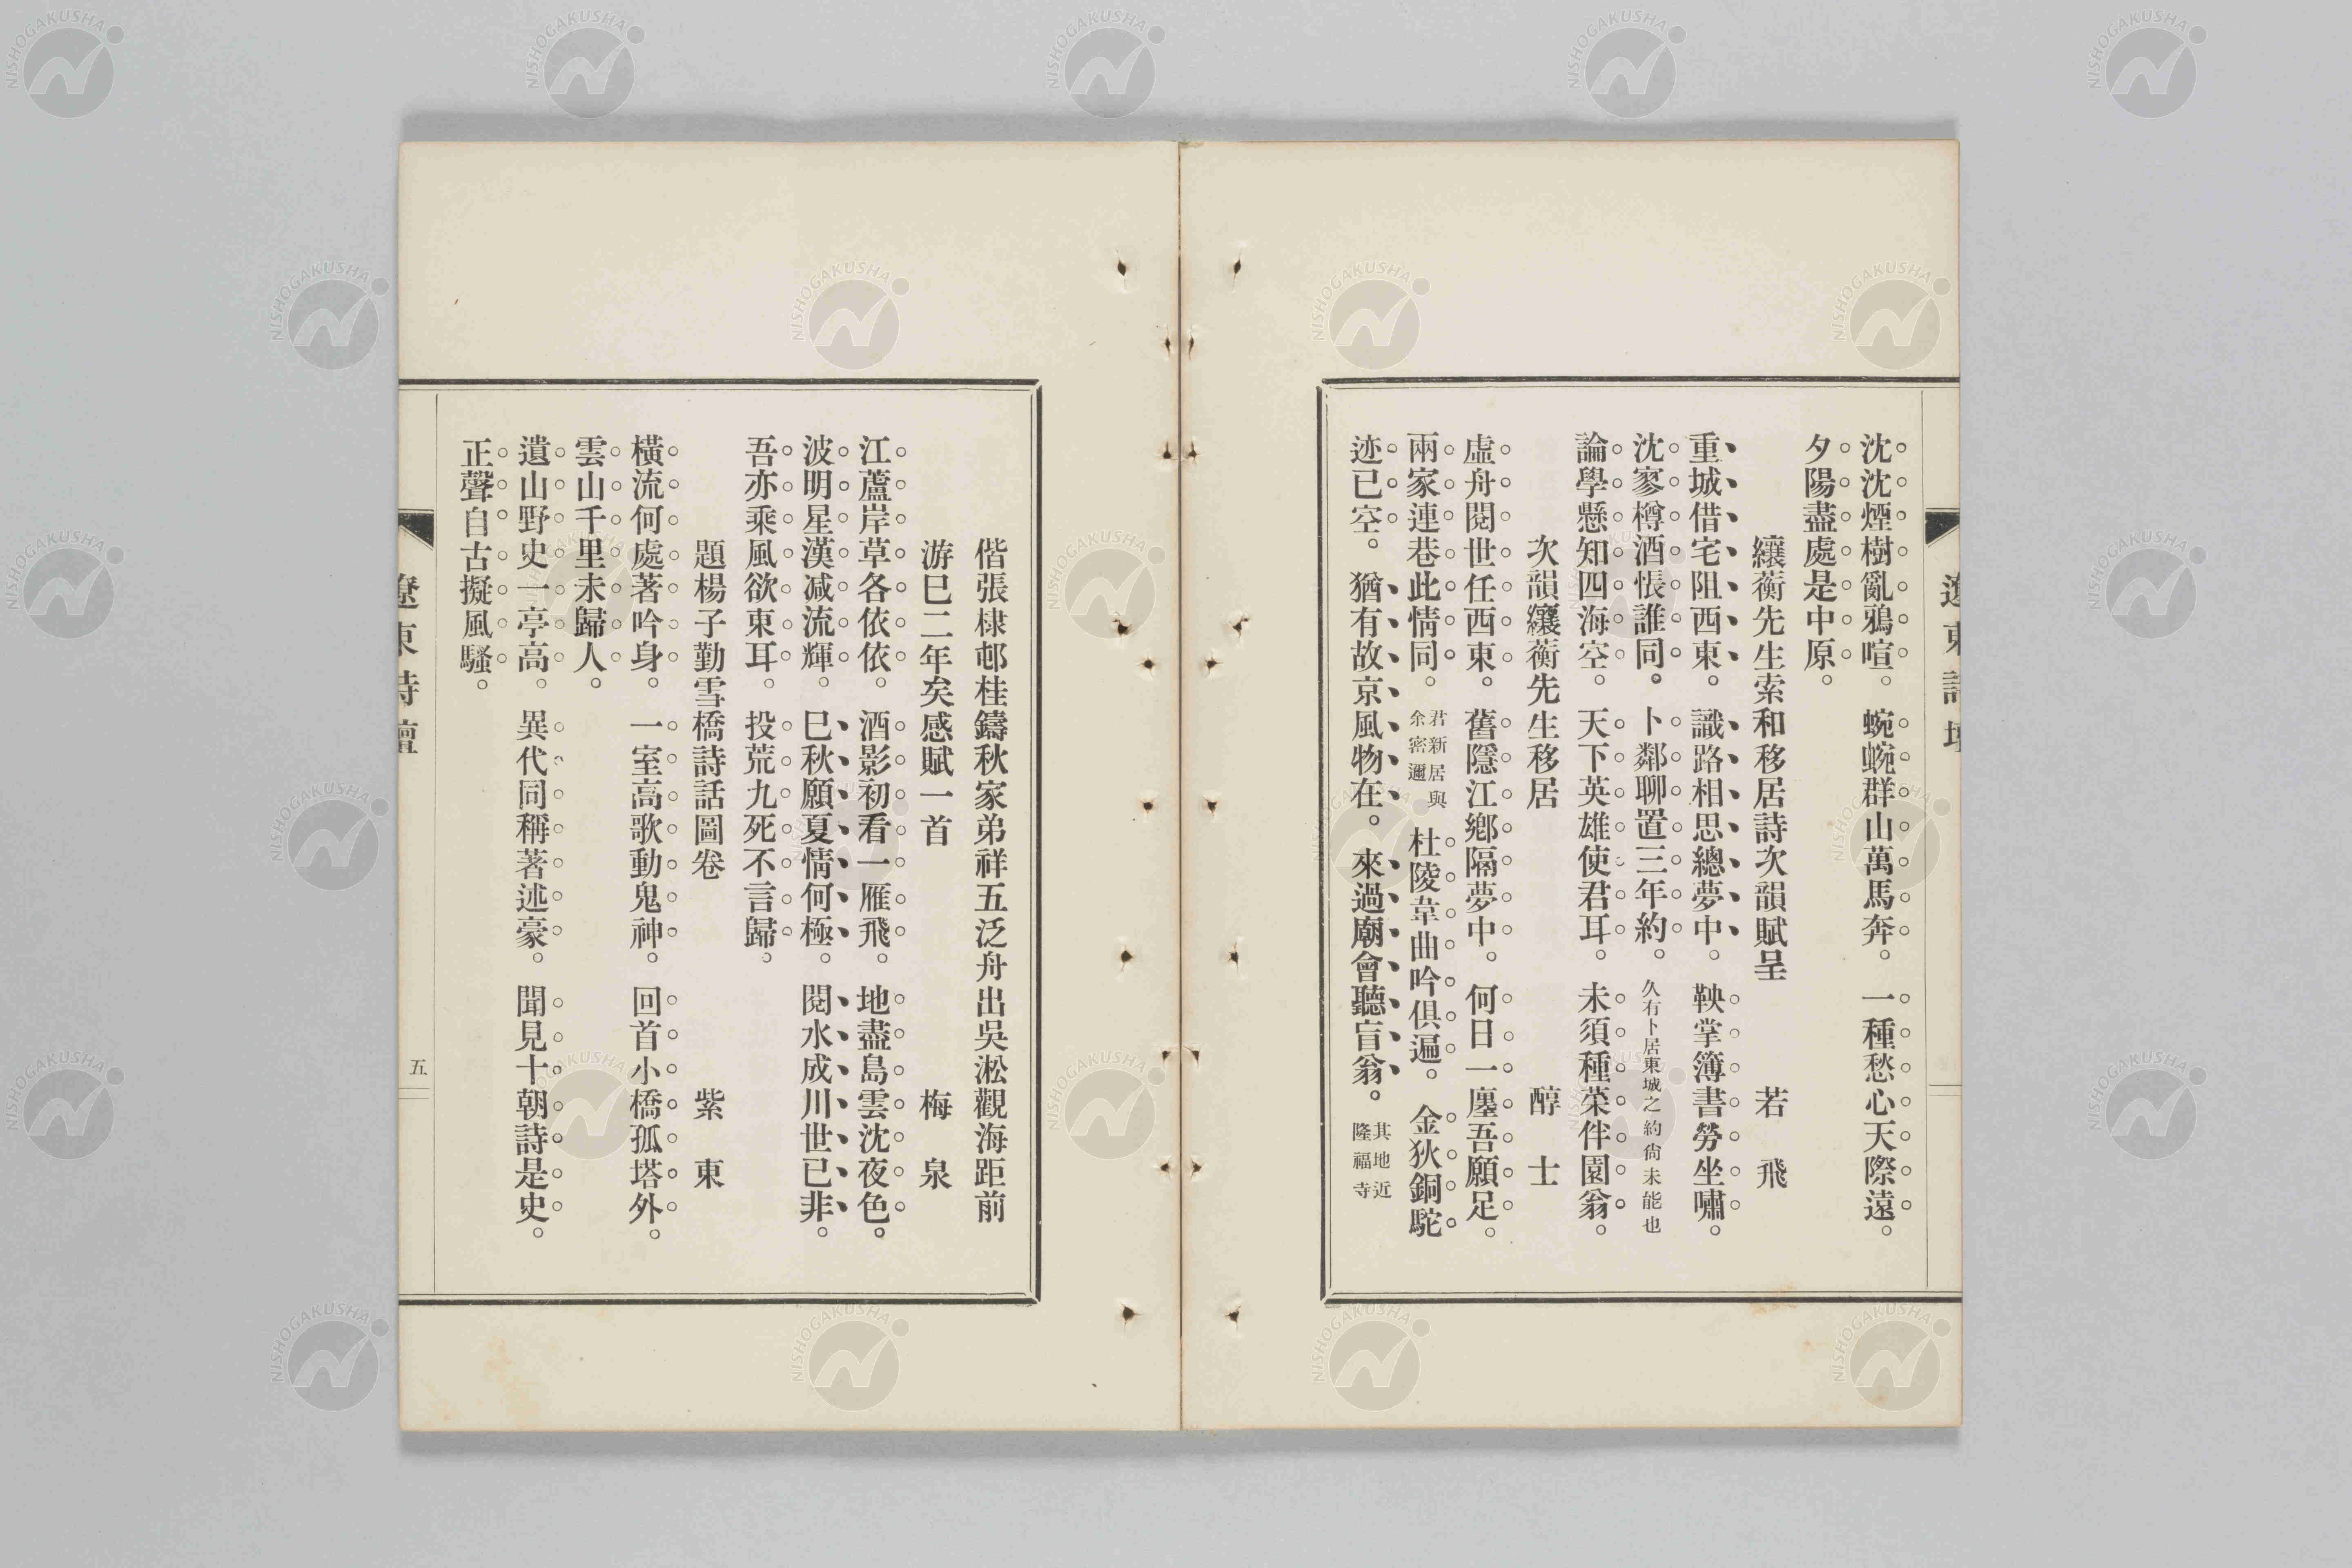 沈沈煙樹亂鴉喧。蜿蜿群山萬馬奔。一種愁心天際遠。
夕陽盡處是中原。
纕蘅先生索和移居詩次韻賦呈　若飛
重城借宅阻西東。識路相思總夢中。鞅掌簿書勞坐嘯。
沈寥樽酒悵誰同。卜鄰聊置三年約。久有卜居東城之約尙未能也
論學懸知四海空。天下英雄使君耳。未須種菜伴園翁。
次韻纕蘅先生移居　醇士
虛舟閱世任西東。舊隱江鄉隔夢中。何日一廛吾願足。
兩家連巷此情同。君新居與余密邇　杜陵韋曲吟俱遍。金狄銅駝
迹已空。猶有故京風物在。來過廟會聽盲翁。其地近隆福寺
遼東詩壇
偕張棣邨桂鑄秋家弟祥五泛舟出吳淞觀海距前
游巳二年矣感賦一首　梅泉
江蘆岸草各依依。酒影初看一雁飛。地盡島雲沈夜色。
波明星漢減流輝。巳秋願夏情何極。閱水成川世已非。
吾亦乘風欲東耳。投荒九死不言歸。
題楊子勤雪橋詩話圖卷　紫東
橫流何處著吟身。一室高歌動鬼神。回首小橋孤塔外。
雲山千里未歸人。
遺山野史一亭高。異代同稱著述豪。聞見十朝詩是史。
正聲自古擬風騷。
遼東詩壇
五
NISHOGAKUSHA